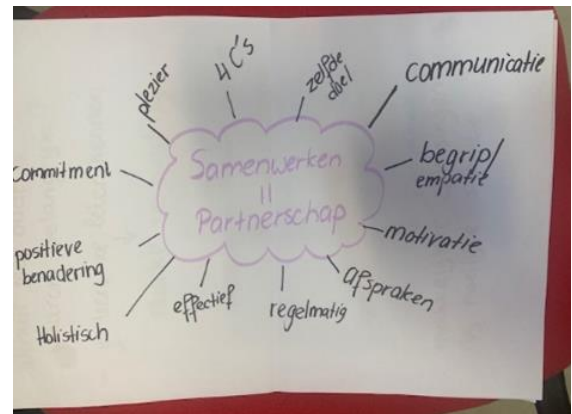 Samenwerken
=
Partnerschap
plezier
4 C's
zelfde
doel
communicatie
begrip/
empatie
motivatie
afspraken
regelmatig
effectief
Holistisch
positieve
benadering
commitment